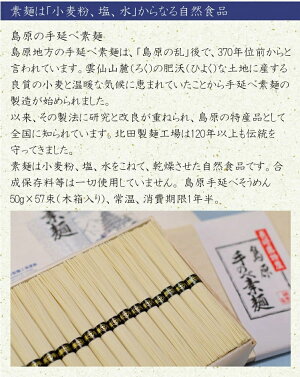 素麺は「小麦粉、塩、水」からなる自然食品
島原の手延べ素麺
島原地方の手延べ素麺は、「島原の乱」後で、370年位前からと
言われています。雲仙山麓(ろく)の肥沃(ひよく)な土地に産する
良質の小麦と温暖な気候に恵まれていたことから手延べ素麺の
製造が始められました。
以来、その製法に研究と改良が重ねられ、島原の特産品として
全国に知られています。北田製麺工場は120年以上も伝統を
守ってきました。
素麺は小麦粉、塩、水をこねて、乾燥させた自然食品です。合
成保存料等は一切使用していません。島原手延べそうめん
50g×57束(木箱入り)、常温、消費期限1年半。
島原
手のべ素麺